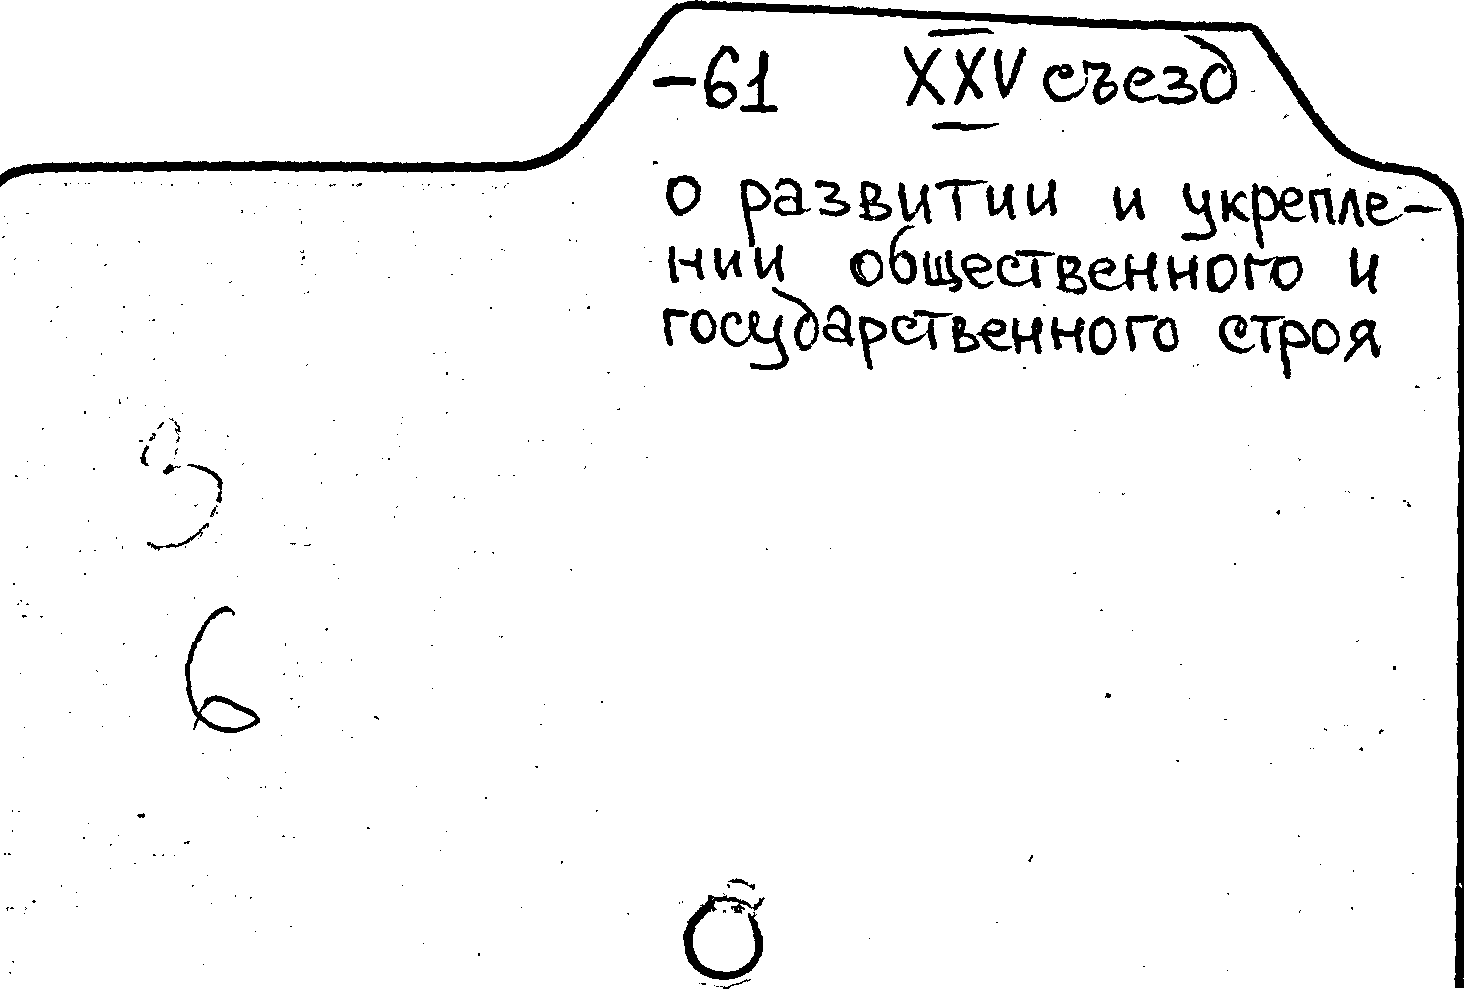 -61 XXV съезд
о развитии и укрепле-
нии общественного и
государственного строя
3
6